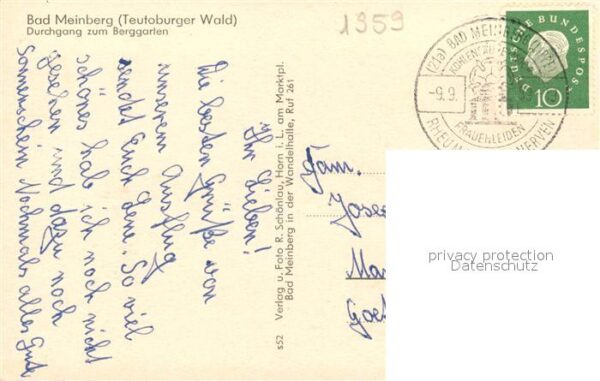 Bad Meinberg (Teutoburger Wald)
Durchgang zum Berggarten
1959
Ihr Lieben!
Die besten Grüße von
unserem Ausflug
sendet Euch Lene. So viel
schönes hab ich noch nicht
gesehen und dazu noch
Sonnenschein Nochmals alles Gute
s52 Verlag u. Foto R. Schönlau, Horn i. L. am Marktpl.
Bad Meinberg in der Wandelhalle, Ruf 261
(21a) BAD MEINBERG
-9.9.
FRAUENLEIDEN
RHEUMA NERVEN
DEUTSCHE BUNDESPOST
10
Fam.
privacy protection
Datenschutz